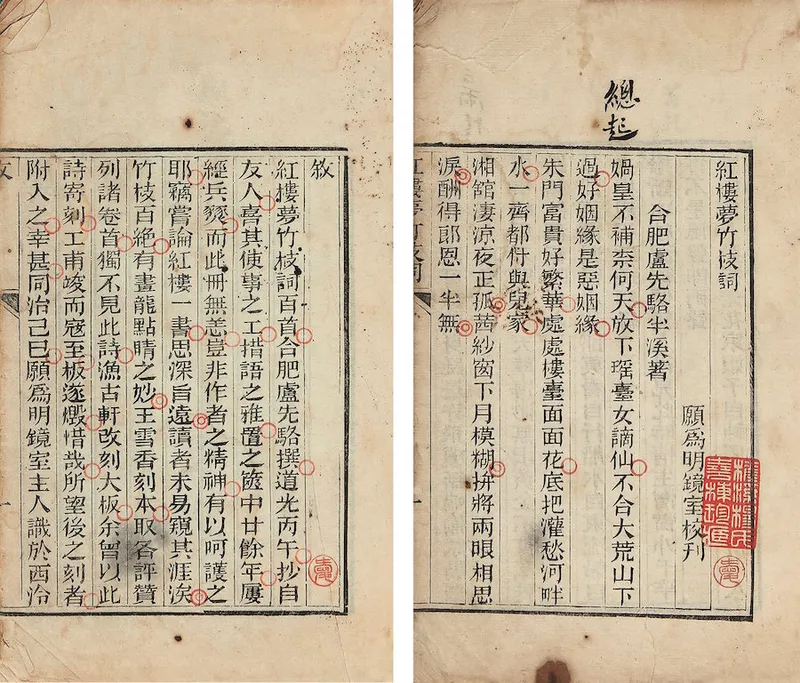 敘
紅樓夢竹枝詞百首合肥盧先駱撰道光丙午抄自
友人喜其使事之工措語之雅置之篋中廿餘年屢
經兵燹而此冊無恙豈非作者之精神有以呵護之
耶竊嘗論紅樓一書思深旨遠讀者未易窺其涯涘
竹枝百絕有畫龍點睛之妙王雪香刻本取各評贊
列諸卷首獨不見此詩漁古軒改刻大板余曾以此
詩寄刻工甫竣而寇至板遂燬惜哉所望後之刻者
附入之幸甚同治己巳願爲明鏡室主人識於西泠
總起
紅樓夢竹枝詞
願爲明鏡室校刊
合肥盧先駱半溪著
媧皇不補柰何天放下瑤臺女謫仙不合大荒山下
過好姻緣是惡姻緣
朱門富貴好繁華處處樓臺面面花底把灌愁河畔
水一齊都衍與兒家
湘館淒涼夜正孤茜紗窗下月模糊拚將兩眼相思
淚酬得郎恩一半無